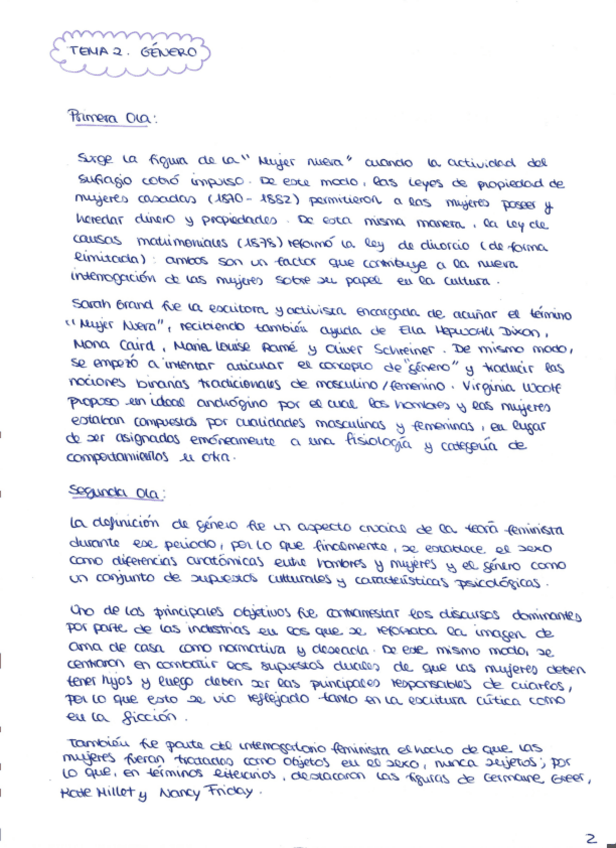 TEMA 2. GÉNERO
Primera Ola:
Surge la figura de la "Mujer nueva" cuando la actividad del
sufragio cobró impulso. De este modo, las leyes de propiedad de
mujeres casadas (1870-1882) permitieron a las mujeres poseer y
heredar dinero y propiedades. De esta misma manera, la ley de
causas matrimoniales (1878) reformó la ley de divorcio (de forma
limitada): ambos son un factor que contribuye a la nueva
interrogación de las mujeres sobre su papel en la cultura.
Sarah Grand fue la escritora y activista encargada de acuñar el término
"Mujer Nueva", recibiendo también ayuda de Ella Hepworth Dixon,
Mona Caird, Maria Louise Ramé y Oliver Schreiner. De mismo modo,
se empezó a intentar articular el concepto de "género" y traducir las
nociones binarias tradicionales de masculino/femenino. Virginia Woolf
propuso un ideal andrógino por el cual los hombres y las mujeres
estaban compuestos por cualidades masculinas y femeninas, en lugar
de ser asignados erróneamente a una fisiología y categoría de
comportamientos u otra.
Segunda Ola:
La definición de género fue un aspecto crucial de la teoría feminista
durante ese periodo, por lo que finalmente, se establece el sexo
como diferencias anatómicas entre hombres y mujeres y el género como
un conjunto de supuestos culturales y características psicológicas.
Uno de los principales objetivos fue contrarrestar los discursos dominantes
por parte de las industrias en los que se reforzaba la imagen de
ama de casa como normativa y deseada. De este mismo modo, se
centraron en combatir los supuestos duales de que las mujeres deben
tener hijos y luego deben ser las principales responsables de criarlos,
por lo que esto se vio reflejado tanto en la escritura crítica como
en la ficción.
También fue parte del interrogatorio feminista el hecho de que las
mujeres fueran tratadas como objetos en el sexo, nunca sujetos; por
lo que, en términos literarios, destacaron las figuras de Germaine Greer,
Kate Millet y Nancy Friday.
2